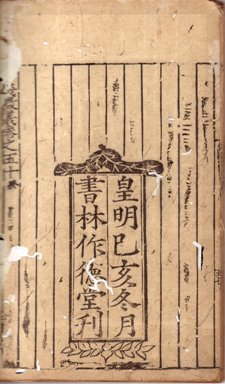 皇明巳亥冬月
書林作德堂刊
之五十